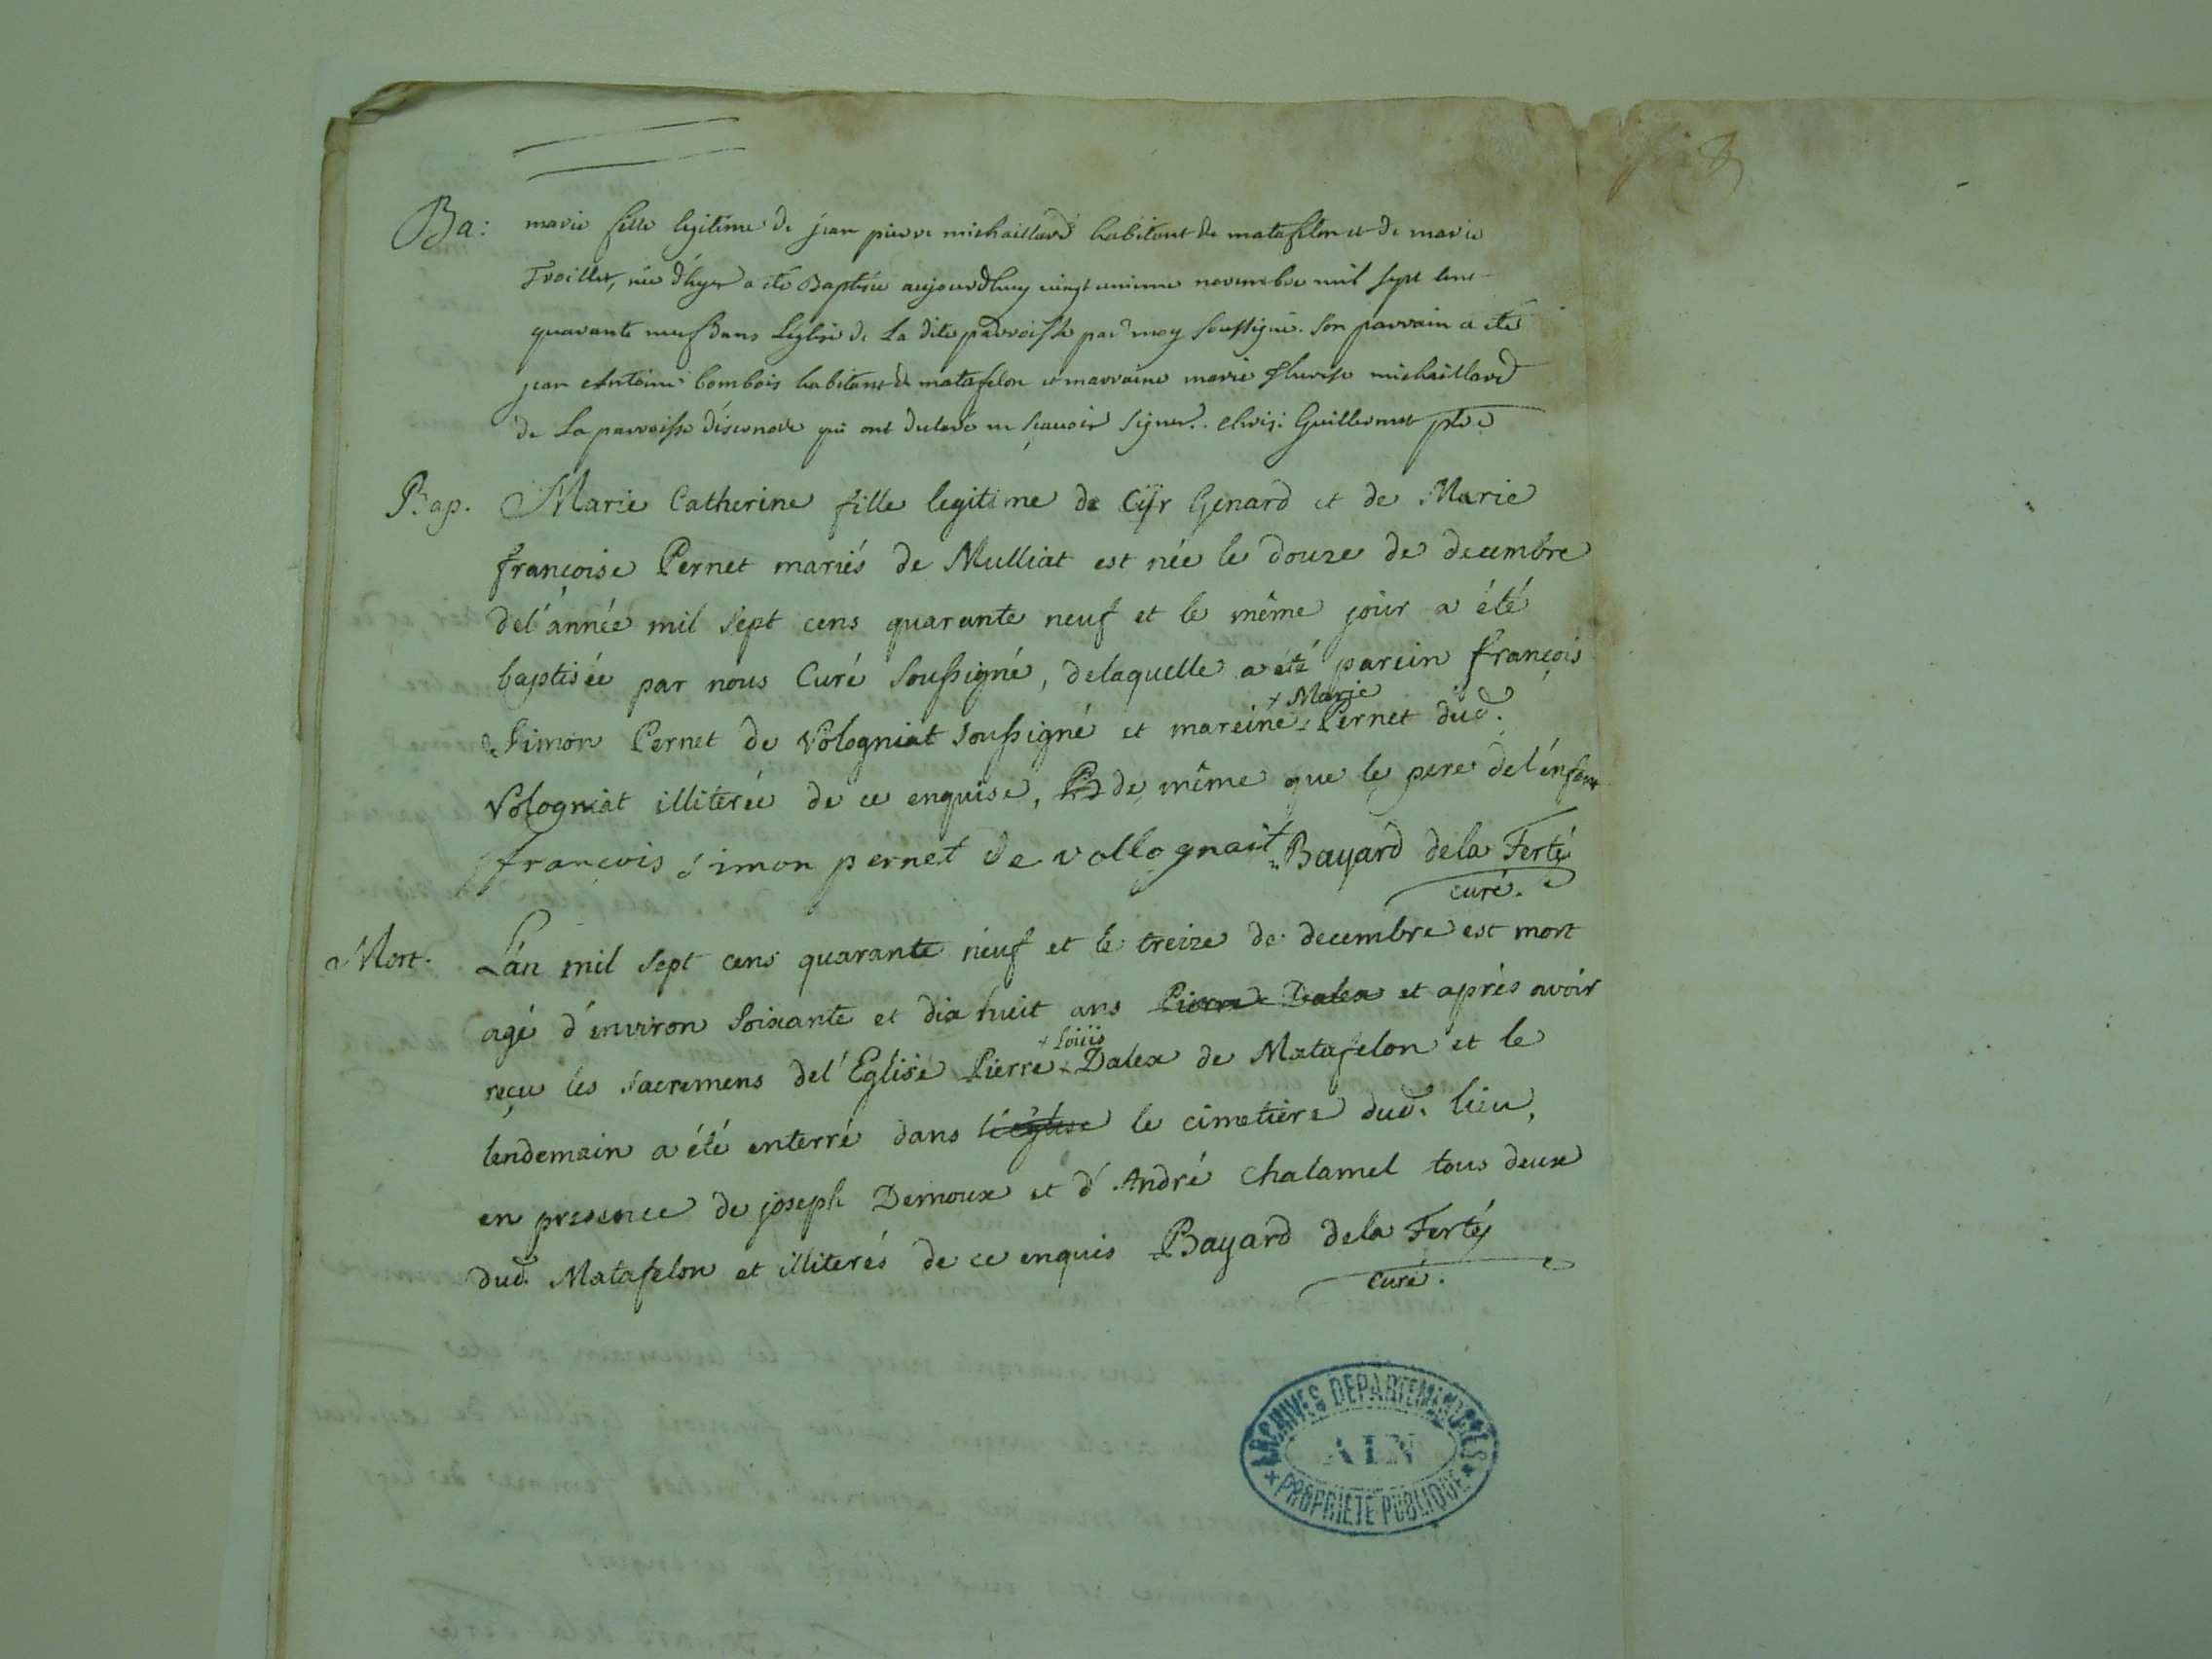 Ba: marie fille legitime de jean pierre michaillard habitant de matafelon et de marie
Troillet, née d'hyer a été Baptisée aujourdhuy vingt unieme novembre mil sept cent
quarante neuf dans Léglise de La dite parroisse par moy soussigné. Son parrain a été
jean Antoine bombois habitant de matafelon et marraine marie therese michaillard
de La parroisse d'isernore qui ont declaré ne sçauoir signer. Guillermet ptre
Bap. Marie Catherine fille legitime de Cÿr Genard et de Marie
françoise Pernet mariés de Mulliat est née le douze de decembre
del'année mil sept cens quarante neuf et le même jour a été
baptisée par nous Curé soussigné, delaquelle a été parein françois
+ Marie
Simon Pernet de Vologniat soussigné et mareine + Pernet dud.
Vologniat illiterée de ce enquise, de même que le pere del'enfant
françois simon pernet de vollognait Bayard dela Ferté
curé.
Mort. L'an mil sept cens quarante neuf et le treize de decembre est mort
agé d'environ soixante et dix huit ans Pierre Dalex et après avoir
+ Loüis
reçu les sacremens del'Eglise Pierre + Dalex de Matafelon et le
lendemain a été enterré dans l'église le cimetière dud. lieu,
en presence de joseph Dernoux et d'André Chalamel tous deux
dud. Matafelon et illiterés de ce enquis Bayard dela Ferté
curé.
ARCHIVES DEPARTEMENTALES
AIN
PROPRIETE PUBLIQUE